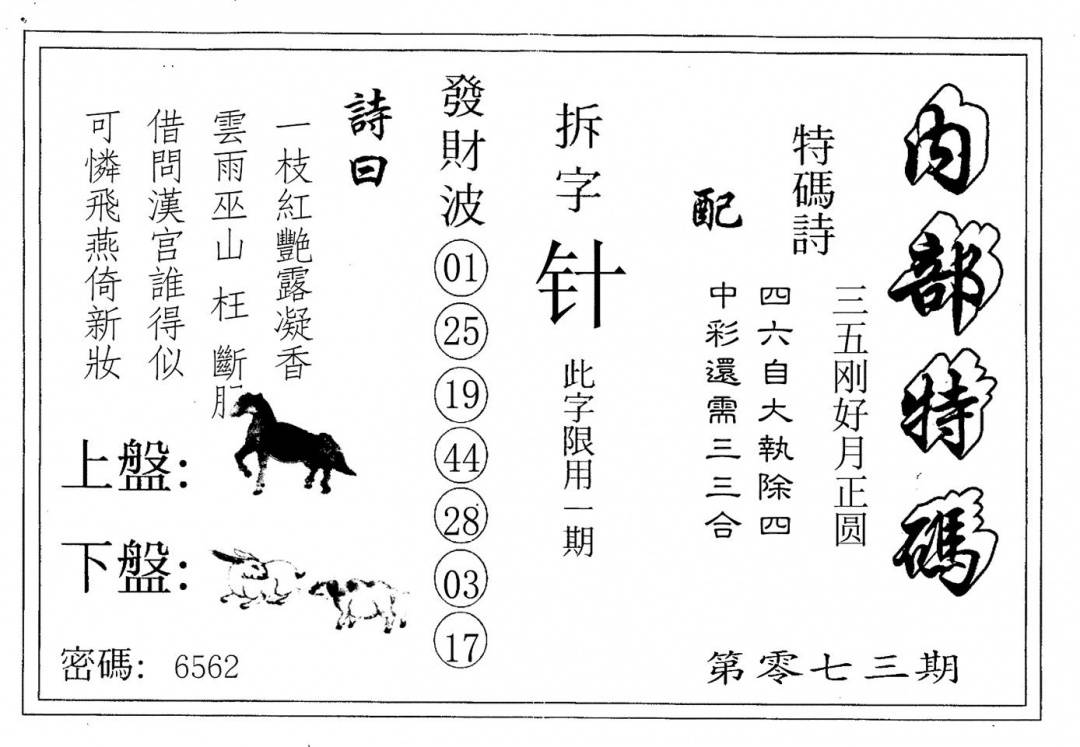 内部特碼
特碼詩
三五刚好月正圆
配
四六自大執除四
中彩還需三三合
第零七三期
拆字
针
此字限用一期
發財波
01
25
19
44
28
03
17
詩曰
一枝紅艷露凝香
雲雨巫山枉斷
借問漢宮誰得似
可憐飛燕倚新妝
上盤:
下盤:
密碼: 6562